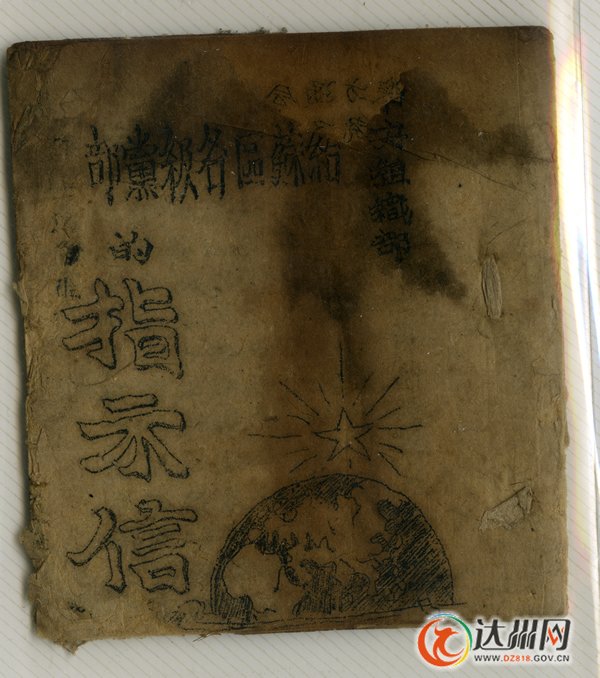 委組織部
給蘇區各級黨部
的
指示信
达州网
WWW.DZ818.GOV.CN